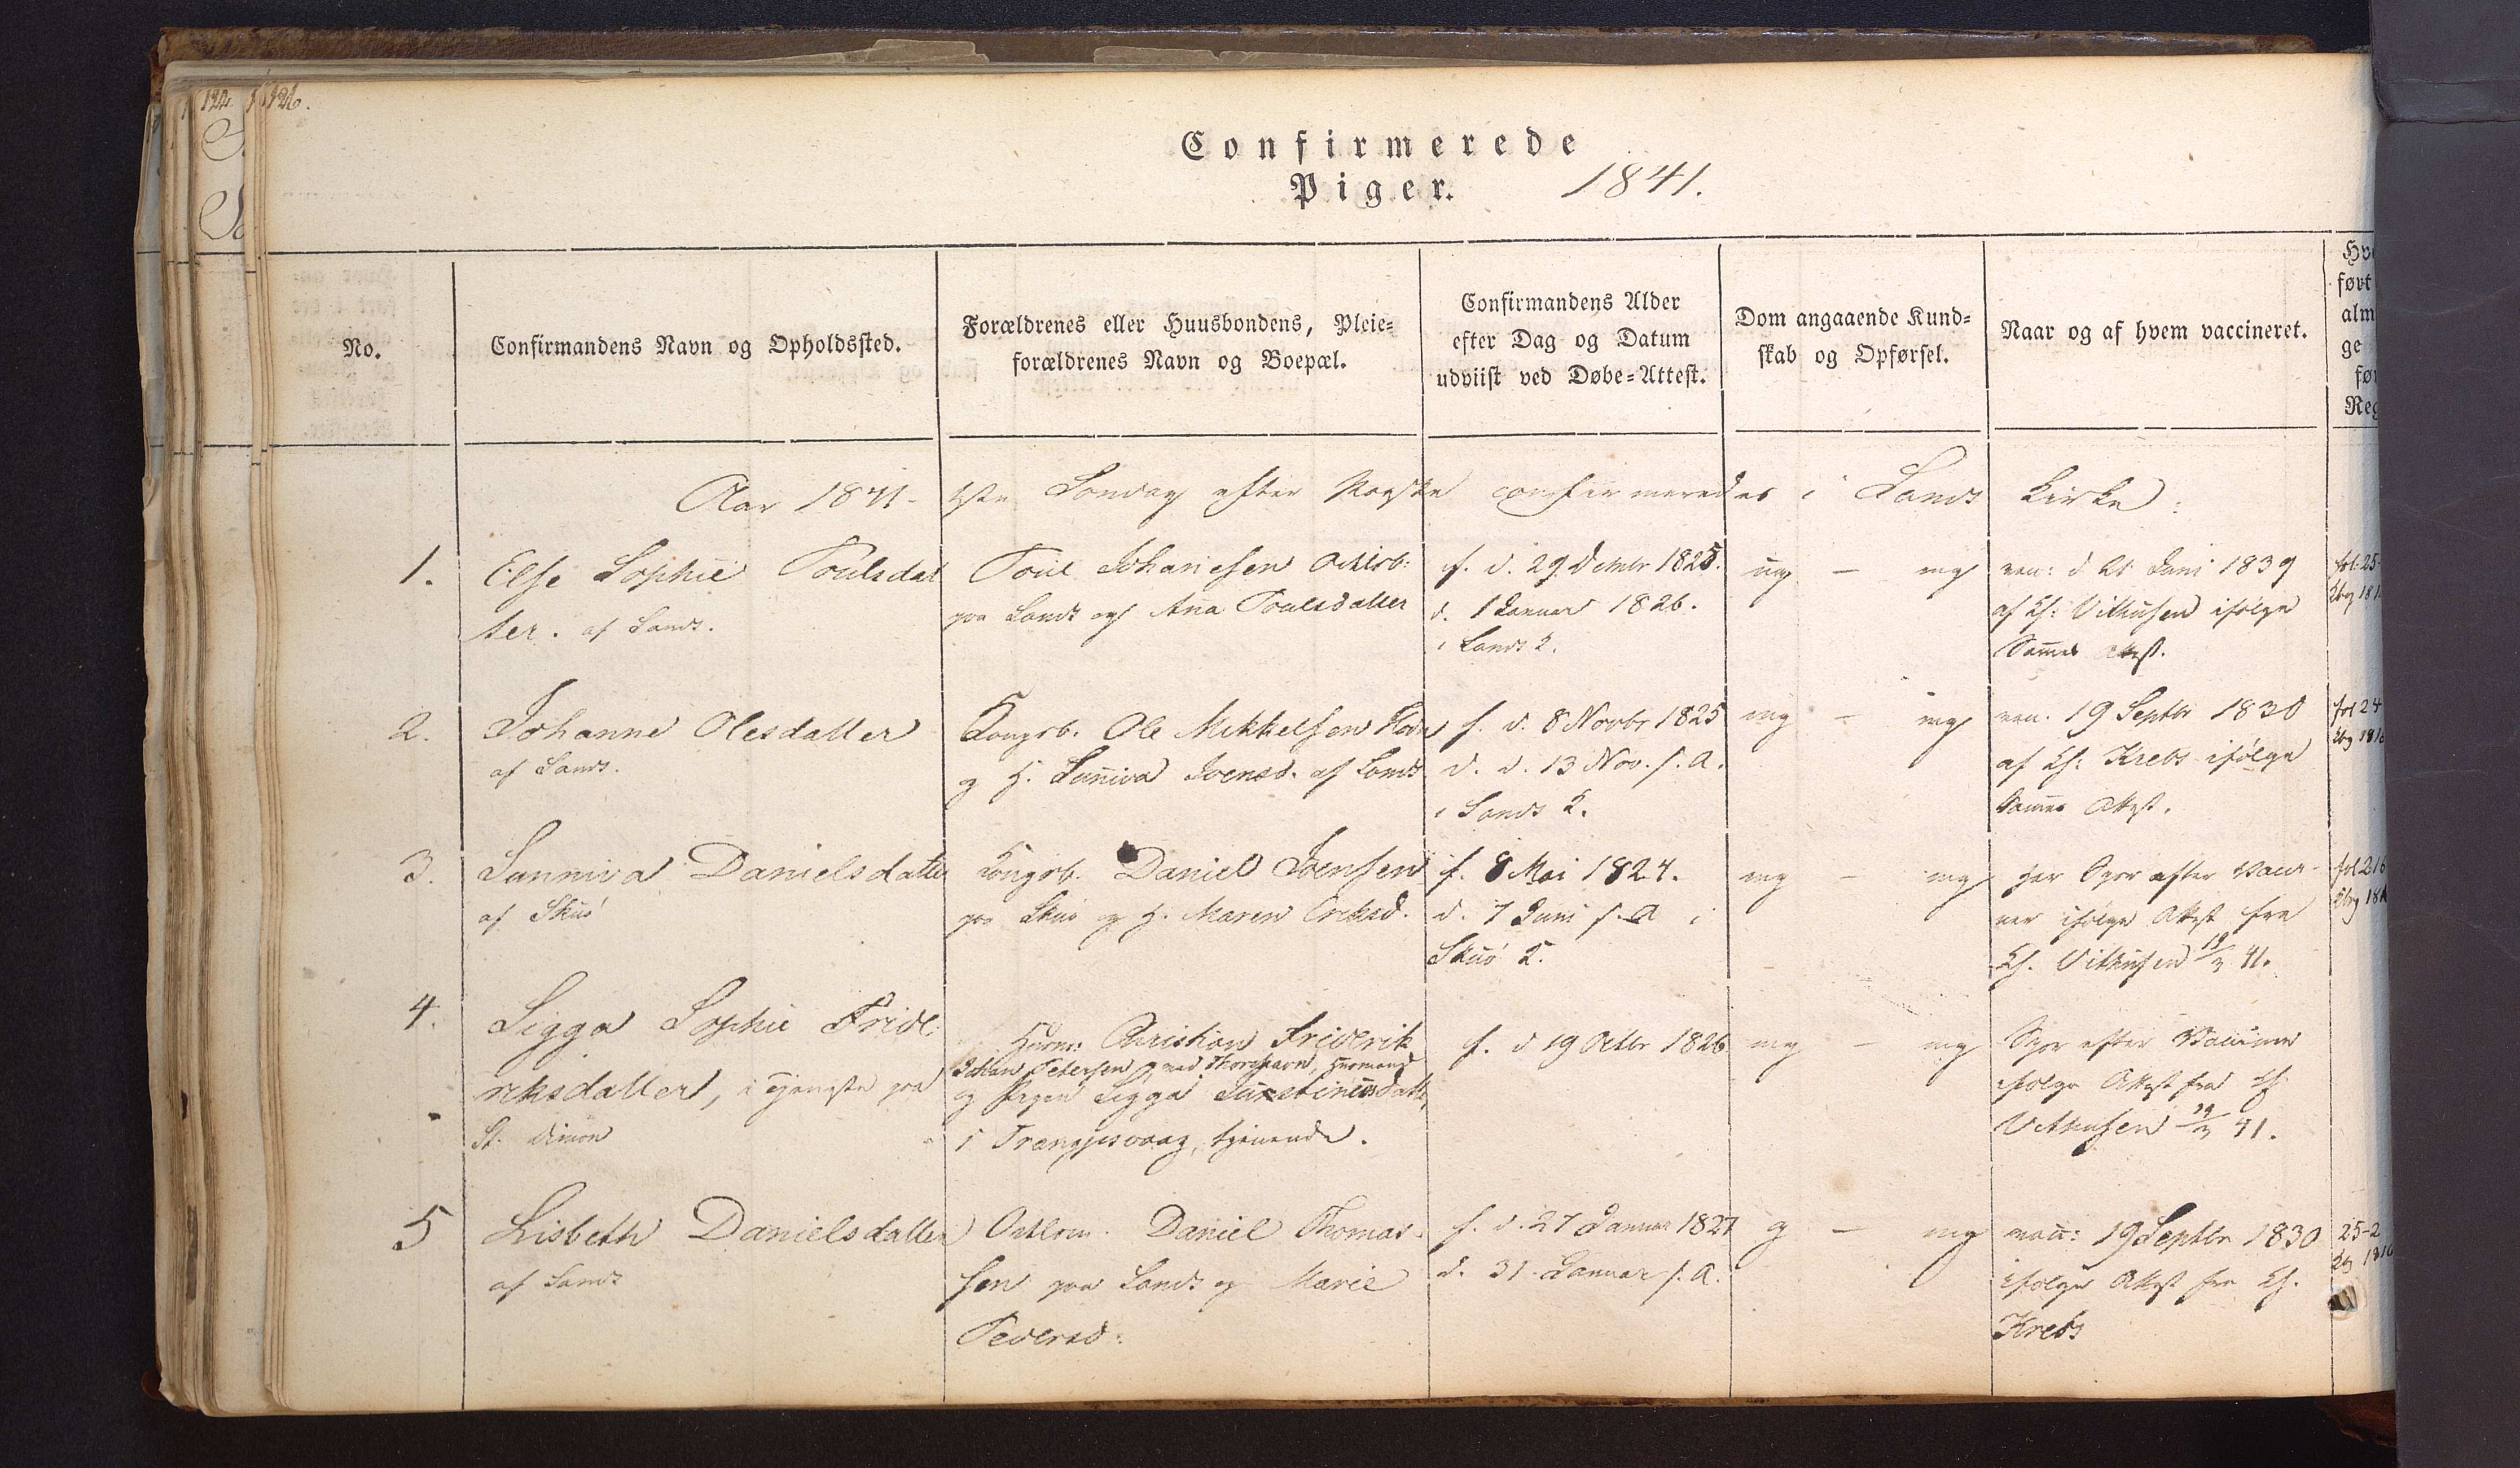 122
126.
Confirmerede
Piger. 1841.
No.
Confirmandens Navn og Opholdssted.
Forældrenes eller Huusbondens, Pleie-
forældrenes Navn og Boepæl.
Confirmandens Alder
efter Dag og Datum
udviist ved Døbe-Attest.
Dom angaaende Kund-
skab og Opførsel.
Naar og af hvem vaccineret.
Hv
ført
alm
ge
før
Reg
Aar 1841 - Søndag efter Paaske confirmeredes i Sands Kirke:
1.
Else Sophie Poulsdat
ter. af Sand.
Poul Johanesen
paa Sand og Aña Poulsdatter
f. d. 29 Decmbr 1825.
d. 1 Januar 1826.
i Sands K.
ug - mg
vac: d 21 Juni 1839
af Ch: Vithusen ifølge
Sam̃es Attest.
fol: 25-
2.
Johanne Olesdatter
af Sand.
Kongsb. Ole Mikkelsen
og H. Sun̄iva Joensd. af Sand
f. d. 8 Novbr 1825
d. d. 13 Nov. s. A.
i Sands K.
mg - mg
vac. 19 Septbr 1830
af Ch: Krebs ifølge
Sam̃es Attest.
fol 24
3.
Sunniva Danielsdatter
af Skuø
Kongsb. Daniel Joensen
paa Skuø og H. Maren Eriksd.
f. 8 Mai 1824.
d. 7 Juni s. A i
Skuø K.
mg - mg
har Spor efter Vacci-
ner ifølge Attest fra
Ch. Vithusen 19/3 41.
fol 216
4.
Sigga Sophie Fride
riksdatter, i Tjeneste paa
St. Dimon
Christian Friderik
Johan Petersen ved Thorshavn,
og Pigen Sigga
i Trangjesvaag, tjenende.
f. d 19 Octbr 1826
mg - mg
Spor efter Vaccine
ifølge Attest fra Ch
Vithusen 19/3 41.
5
Lisbeth Danielsdatter
af Sand
Daniel Thomas-
sen paa Sand og Marie
Pedersd:
f. d. 27 Januar 1827
d. 31 Januar s. A.
g - mg
vacc: 19 Septbr 1830
ifølge Attest fra Ch.
Krebs
25-2